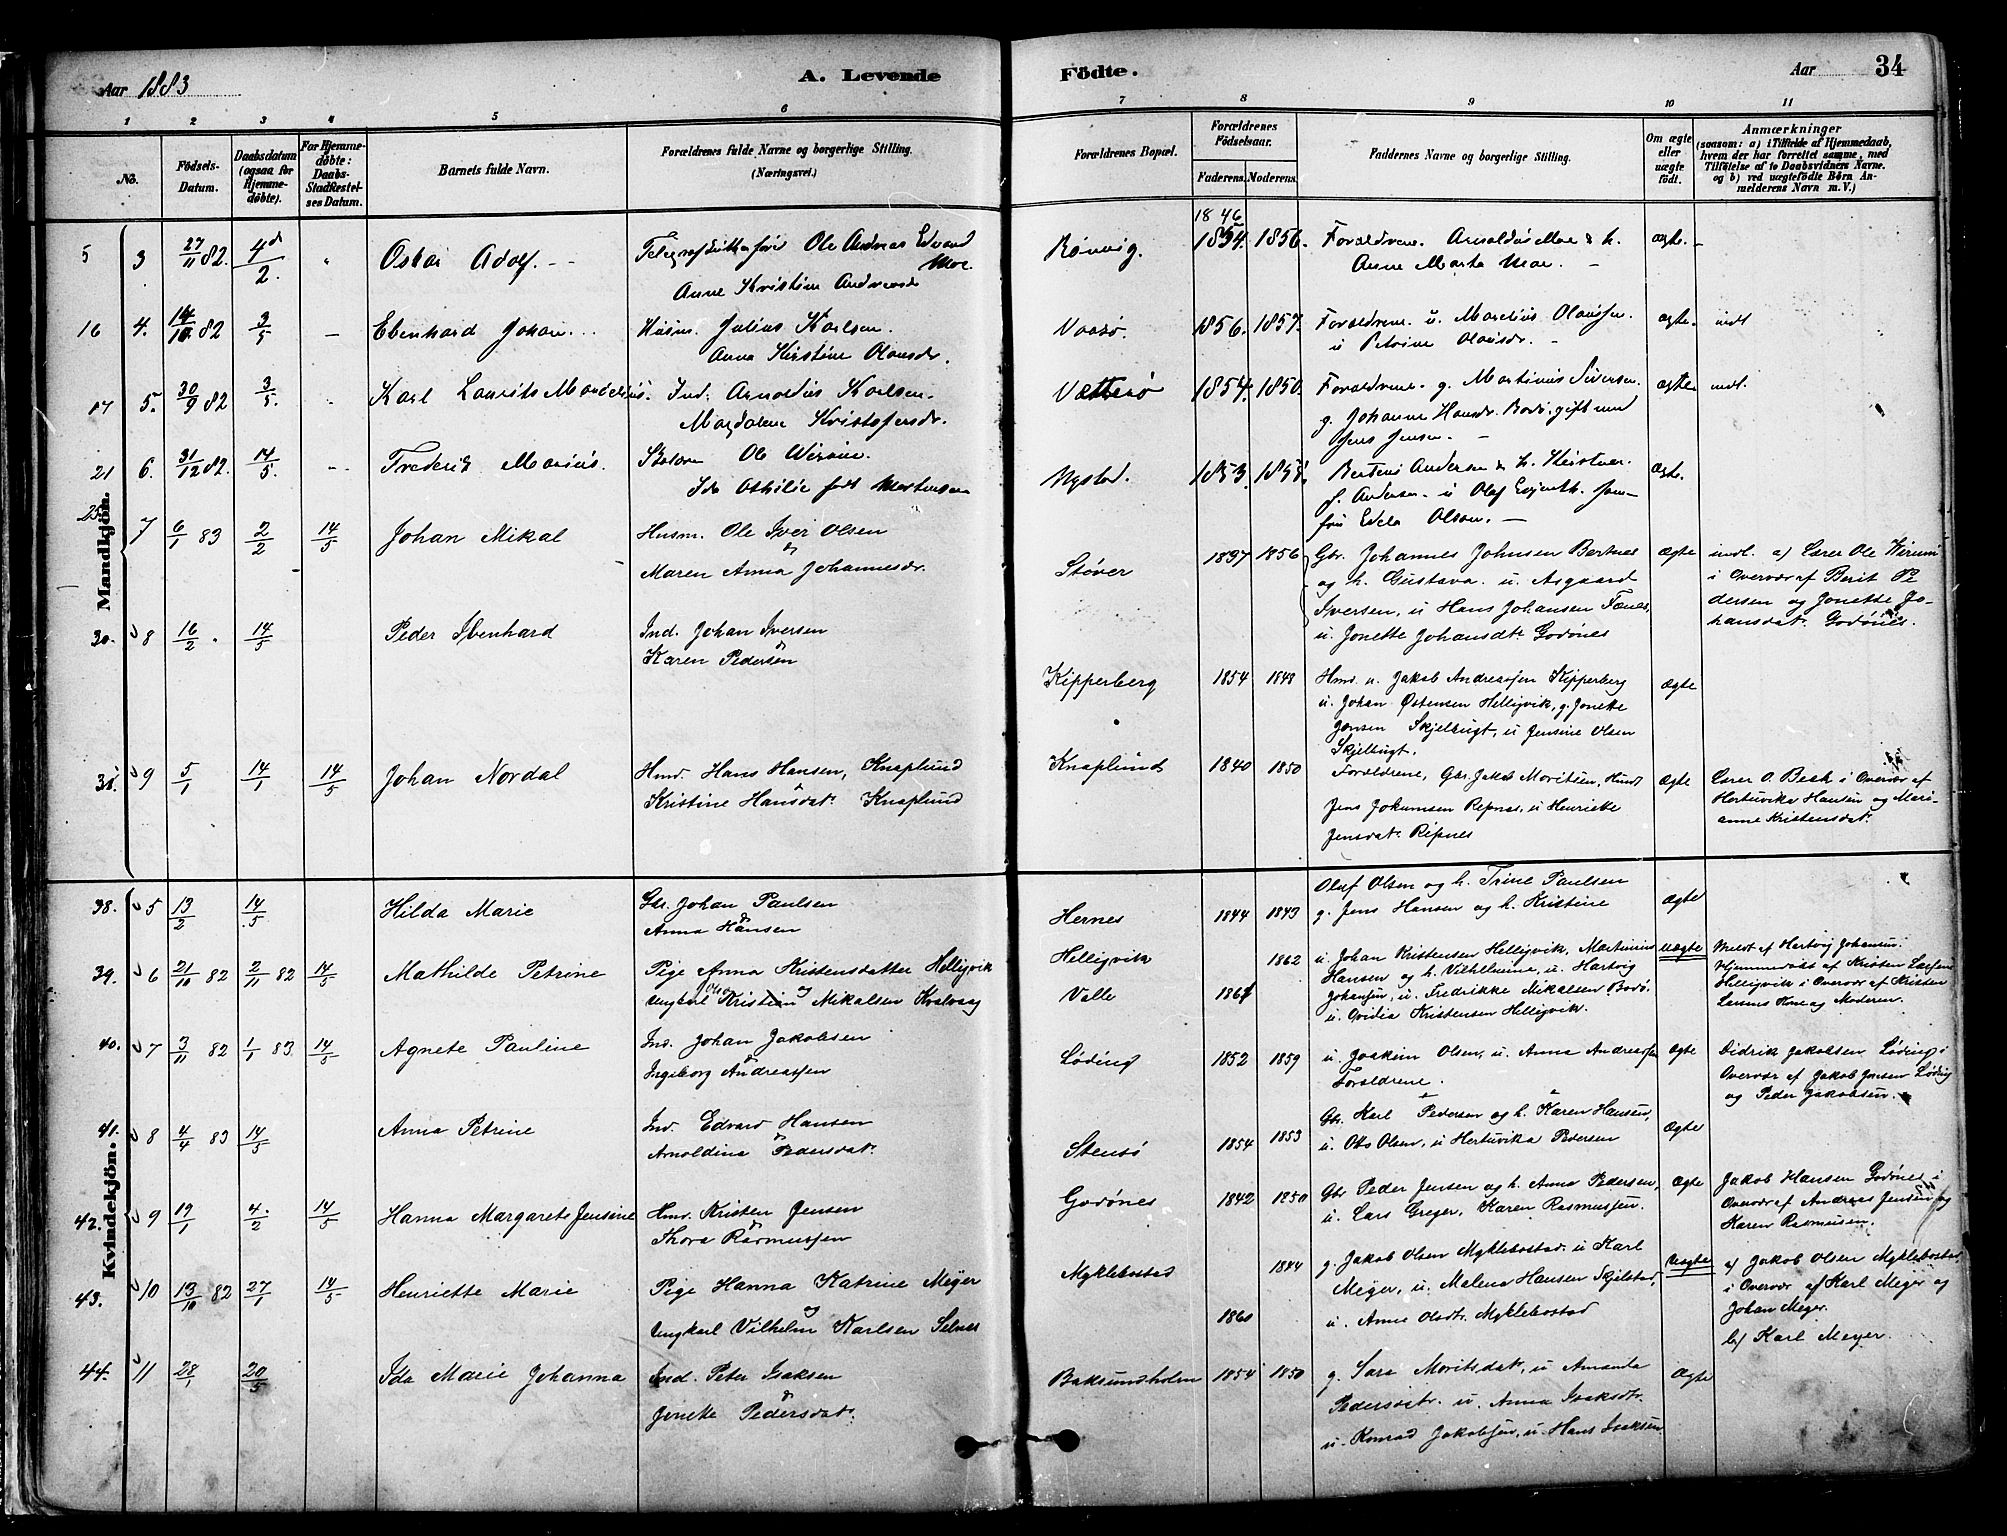 Aar 1883
A. Levende
Födte.
Aar 34
1 2 3 4 5 6 7 8 9 10 11
No.
Fødsels-Datum.
Daabsdatum (ogsaa for Hjemmedøbte).
For Hjemmedøbte: Daabs-Stadfæstelses Datum.
Barnets fulde Navn.
Forældrenes fulde Navne og borgerlige Stilling. (Næringsvei.)
Forældrenes Bopæl.
Forældrenes Födselsaar.
Faderens. Moderens.
Faddernes Navne og borgerlige Stilling.
Om ægte eller uægte født.
Anmærkninger
(saasom: a) i Tilfælde af Hjemmedaab, hvem der har forrettet samme, med Tilføielse af to Daabsvidners Navne. og b) ved uægtefödte Börn Anmelderens Navn m. V.)
Mandkjön.
5 3 27/11 82. 4d/2 Oskar Adolf. Ole Andreas Edvard Moe.
Anne Kristine Andreasdr
Rönvig. 1846 1854. 1856. Forældrene. Arnoldus Moe & h.
Anne Marta Moe. ægte.
16 4. 14/10 82 3/5 Ebenhard Johan. Husm. Julius Karlsen.
Anna Kirstine Olausdr.
Vaasø. 1856. 1857. Forældrene. u. Marelius Olaussen.
u Petrine Olausdr. ægte. indl
17 5. 30/9 82 3/5. Karl Laurits Mandelius. Ind. Arnoldus Karlsen.
Magdalene Kristofersdr.
Vættesø 1854. 1850. Forældrene. g. Martinus Siversen.
g. Johanne Hansdr. Bodø. gift med
Jens Jensen. ægte indl.
21 6. 31/12 82. 14/5. Frederik Marius. Ole Wirum.
Ida Othilie født Mortensen
Nystad. 1853. 1858. Bertens Andersen & h.
Andersen u Olaf
Edela Olsen. Ægte.
25. 7 6/1 83 2/2 14/5 Johan Mikal Husm. Ole Iver Olsen
&
Maren Anna Johannesdr.
Støver 1837 1856 Gbr. Johannes Johnsen Bertnes
og h. Gustava. u. Asgaard
Iversen, u Hans Johansen Fænes,
u. Jonette Johansdtr Godønes
Ægte indl. a) Lærer Ole Wirum
i Overvær af Berit Pe
dersen og Jonette Jo-
hansdat. Godønes.
30. 8 16/2 14/5 Peder Ibenhard Ind. Johan Iversen
&
Karen Pedersen
Kipperberg 1854 1848 Hmd. u. Jakob Andreassen Kipperberg
u. Johan Østensen Helligvik, g. Jonette
Jensen Skjelbugt, u Jensine Olsen
Skjelbugt. Ægte
31. 9 5/1 14/1 14/5 Johan Nordal Hmd. Hans Hansen, Knaplund
&
Kristine Hansdat. Knaplund
Knaplund 1840 1850 Forældrene, Gbr. Jakob Moritsen, Hund
Jens Jokumsen Ripnes, u Henriette
Jensdat. Ripnes
Ægte Lærer O. Beck i Overvær af
Hertuvika Hansen og Mari-
anne Kristensdat.
Kvindekjön.
38. 5 13/2 14/5 Hilda Marie Gbr. Johan Paulsen
&
Anna Hansen
Hernes 1844 1843 Oluf Olsen og h. Trine Paulsen
g. Jens Hansen og h. Kristine Ægte
39. 6 21/10 82 2/11 82 14/5 Mathilde Petrine Pige Anna Kristensdatter Helligvik
og
Ungkarl Kristian Mikalsen Kvalvaag
Helligvik 1862
Valle 1861
u. Johan Kristensen Helligvik, Martinius
Hansen og h. Vilhelmine, u. Hartvig
Johansen, u. Fredrikke Mikalsen Bodø.
u. Ovidia Kristensen Helligvik.
uægte Meldt af Hertvig Johansen.
Hjemmedøbt af Kristen Larsens
Helligvik i Overvær af Kristen
Larsens Kone og Moderen.
40. 7 3/11 82 1/1 83 14/5 Agnete Pauline Ind. Johan Jakobsen
&
Ingeborg Andreassen
Løding 1852 1859 u. Joakim Olsen, u. Anna Andreassen
Forældrene. Ægte
Didrik Jakobsen Løding i
Overvær af Jakob Jensen Løding
og Peder Jakobsen.
41. 8 4/4 83 14/5 Anna Petrine Ind. Edvard Hansen
&
Arnoldina Pedersdat.
Stensø 1854 1853 Gbr. Karl Pedersen og h. Karen Hansen,
u. Ole Olsen, u Hertuvika Pedersen Ægte
42. 9 19/1 4/2 14/5 Hanna Margarete Jensine Hmd. Kristen Jensen
&
Thora Rasmussen
Godønes 1842 1850 Gbr Peder Jensen og h. Anna Pedersen,
u. Lars Greger, Karen Rasmussen.
Ægte Jakob Hansen Godønes i
Overvær af Andreas Jensen og
Karen Rasmussen.
43. 10 13/10 82 27/1 14/5 Henriette Marie Pige Hanna Katrine Meyer
og
Ungkarl Vilhelm Karlsen Selnes
Myklebostad 1844
1860
g. Jakob Olsen Myklebostad. u Karl
Meyer, u. Malena Hansen Skjelstad,
u. Anne Olsdtr. Myklebostad
Uægte a) Jakob Olsen Myklebostad,
i Overvær af Karl Meyer og
Johan Meyer.
b) Karl Meyer.
44. 11 28/1 20/5 Ida Marie Johanna Ind. Peter Isaksen
&
Jonette Pedersdat.
Baksundholm 1854 1850 g. Sara Moritsdat, u. Amanda
Pedersdtr. u. Anna Isaksdtr.
u. Konrad Jakobsen, u. Hans Isaksen Ægte